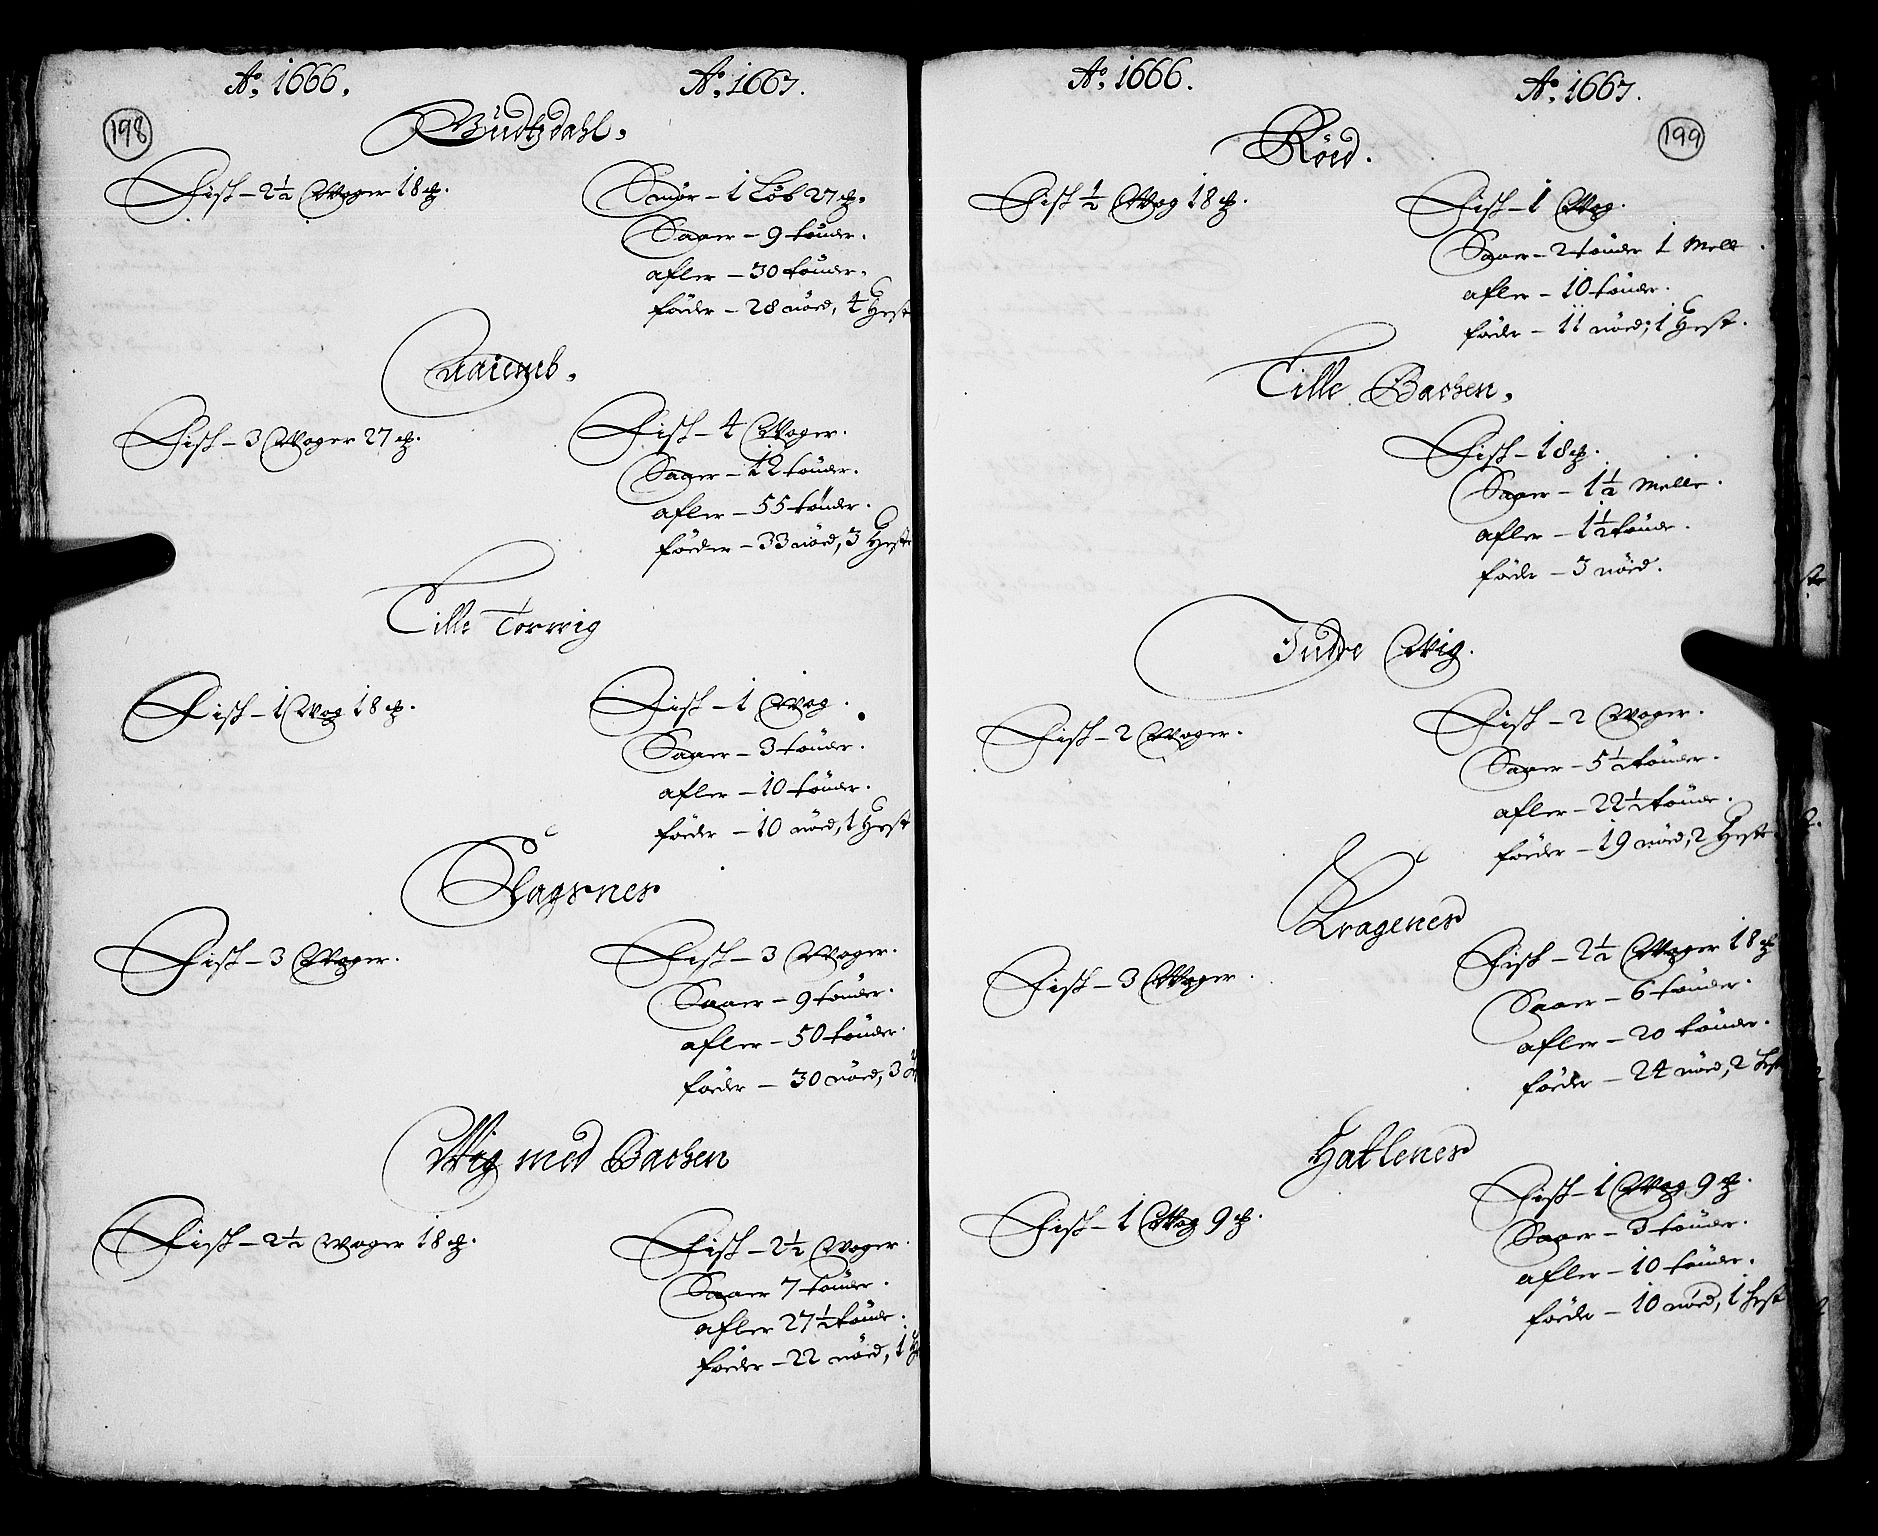 198
Ao. 1666.
Ao. 1667.
Budtzdahl.
Fisk – 2½ Woger 18 ℔.
Smør – 1 Løb 27 ℔.
Saaer – 9 tønder.
afler – 30 tønder.
føder – 28 nöed, 4 Hest
Fisk – 3 Woger 27 ℔.
Fisk – 4 Woger.
Saaer – 12 tønder.
afler – 55 tønder.
føeder – 33 nöed, 3 Heste
Lille Torwig
Fisk – 1 Wog 18 ℔.
Fisk – 1 Wog.
Saaer – 3 tønder.
afler – 10 tønder.
føeder – 10 nöed, 1 Hest
Slagsnes
Fisk – 3 Woger.
Fisk – 3 Woger.
Saaer – 9 tønder.
afler – 50 tønder.
føder – 30 nöed, 3
Wiig med Bachen
Fisk – 2½ Woger 18 ℔.
Fisk – 2½ Woger.
Saaer 7 tønder.
afler 27½ tønde.
føeder – 22 nöed, 1 He
199
Ao. 1666.
Ao. 1667.
Röed.
Fisk ½ Wog 18 ℔.
Fisk – 1 Wog.
Saaer – 2 tønder 1 Mele
afler – 10 tønder.
føder – 11 nöed, 1 Hest.
Lille Bachen.
Fisk – 18 ℔.
Saaer – 1½ Melle.
afler – 1½ tønde.
føde – 3 nöed.
Indre Wig.
Fisk – 2 Woger.
Fisk – 2 Woger.
Saaer – 5½ tønder.
afler – 22½ tønde.
føeder – 19 nöed, 2 Heste
Kragenes
Fisk – 3 Woger.
Fisk – 2½ Woger 18 ℔
Saaer – 6 tønder.
afler – 20 tønder.
føeder – 24 nöed, 2 Hest
Hatlenes
Fisk – 1 Wog 9 ℔.
Fisk – 1 Wog 9 ℔.
Saaer – 3 tønder.
afler – 10 tønder.
føede – 10 nöed, 1 Hest